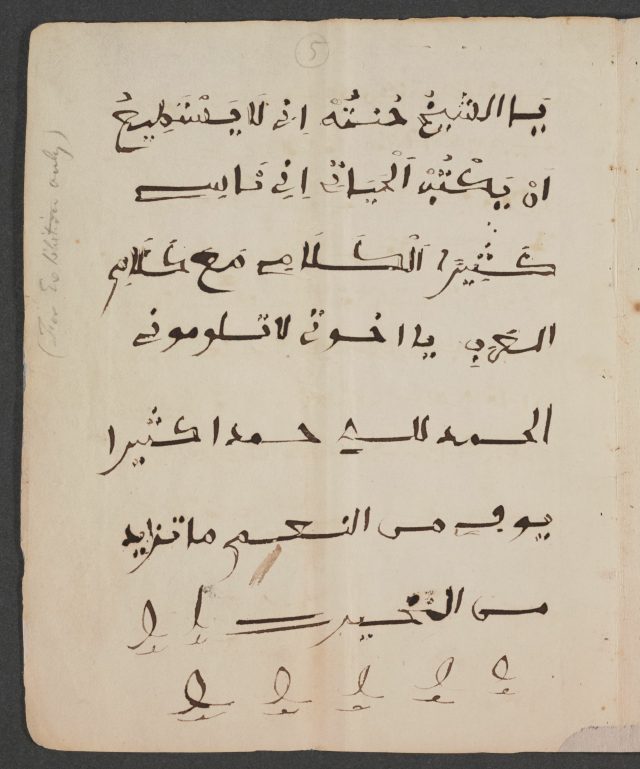 5
يَا الشَّيْخُ حُنتُهْ اِنِي لَا يَسْتَطِيعُ
اَنْ يَكْتُبْ اَلْحَيَاتِي اِنِي نَاسي
كَثِيرًا اَلْكَلَامي مَعَ كَلَامِ
العَرَبِ يا اخوتي لا تلوموني
الحمد لله حمدا كثيرا
يوفي من النعم ما تزايد
من الخير
(For Exhibition only)